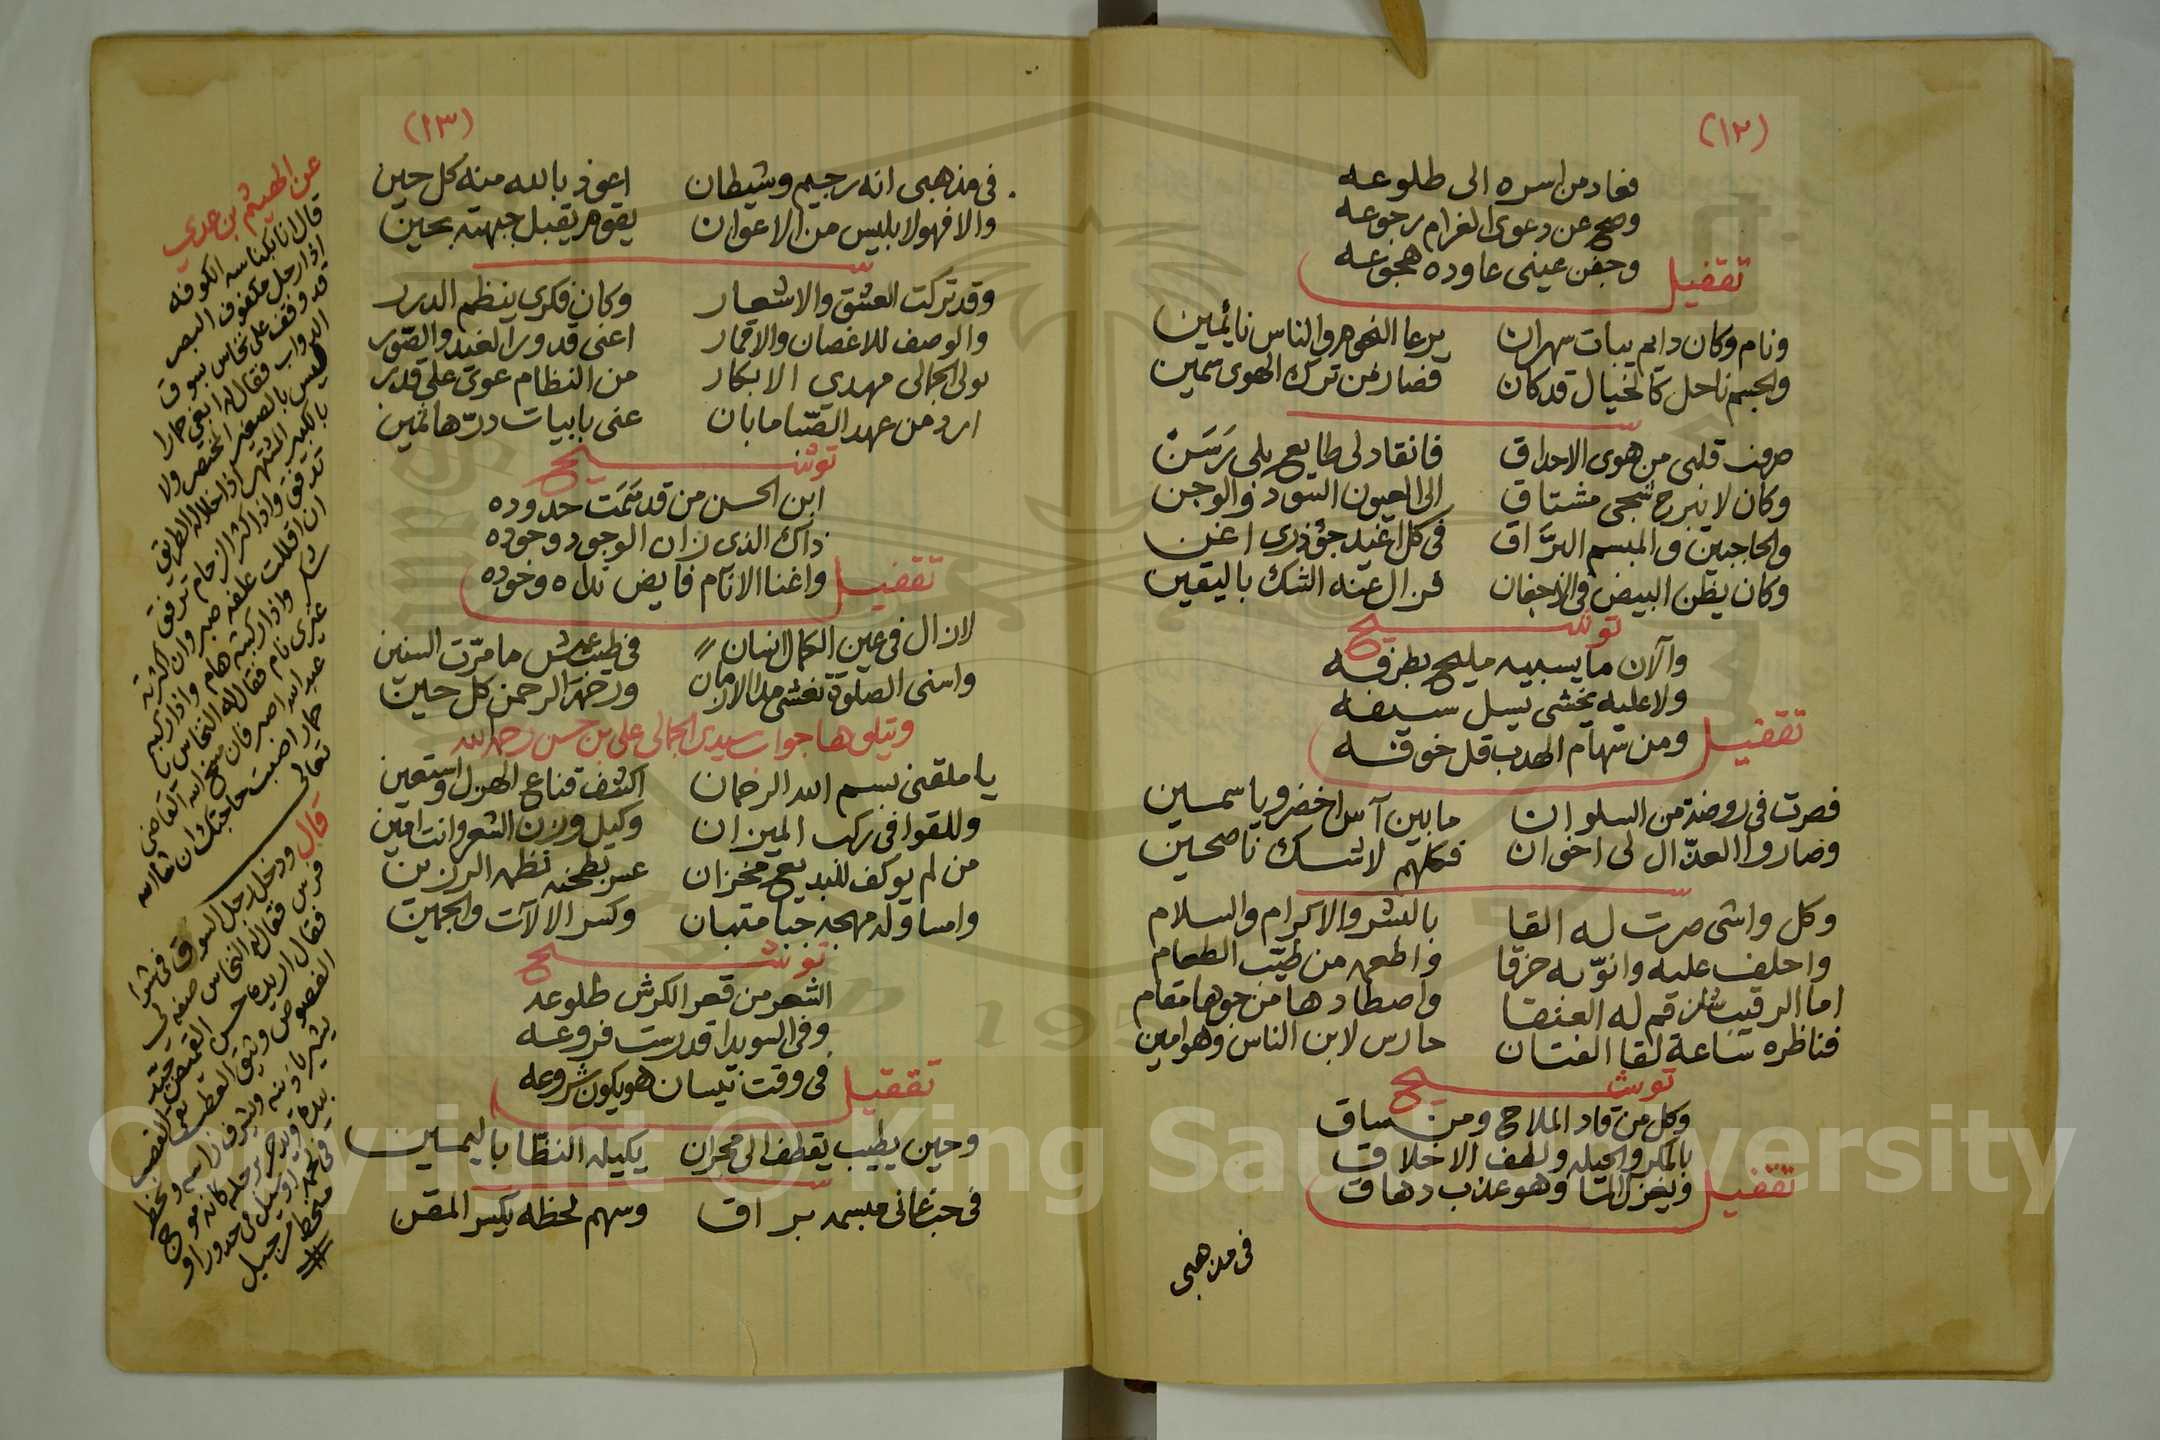 (١٢)
فعاد من اسره الى طلوعه
وصح عن دعوى الغرام رجوعه
تقفيل
وجفن عيني عاوده هجوعه
ونام وكان دايم يبات سهران يرعا النجوم والناس نائمين
والجسم ناحل كالخيال قد كان فصار من ترك الهوى سمين
صرفت قلبي من هوى الاحداق فانقاد لي طايع بلى رَسَنْ
وكان لا يبرح شجي مشتاق الى العيون السود والوجن
والحاجبين والمبسم البرَّاق في كل اغيد جؤذري اغن
وكان يظن البيض في الاجفان فزال عنه الشك باليقين
توشيح
والآن ما يسبيه مليح بطرفه
ولا عليه يخشى يسل سيفه
تقفيل
ومن سهام الهدب قل خوفه
فصرت في روضة من السلوان ما بين آس اخضر وياسمين
وصاروا العذّال لي اخوان فكلهم لا شك ناصحين
وكل واشى صرت له القا بالبشر والاكرام والسلام
واحلف عليه وانوّله حزقا واطعمه من طيّب الطعام
اما الرقيب قم له العنقا واصطادها من جوها مقام
فناظره ساعة لقا الفتان حارس لابن الناس وهو امين
توشيح
وكل من قاد الملاح ومن ساق
بالمكر والحيله ولطف الاخلاق
تقفيل
وهو عذب دهاق
في مذهبي
(١٣)
في مذهبي انه رجيم وشيطان اعوذ بالله منه كل حين
والا فهو لابليس من الاعوان يقوم يقبل جبهته بحين
وقد تركت العشق والاشعار وكان فكري ينظم الدرر
والوصف للاغصان والاقمار اعني قدود الغيد والصّور
لولى الجمالي مهدي الابكار من النظام عوى على قدر
ارد من عهد الصّبا ما بان عنى بابيات درّها ثمين
توشيح
ابن الحسن من قد تمّت حدوده
ذاك الذي زان الوجود وجوده
تقفيل
واغنا الانام فايض نداه وجوده
لازال في عين الكمال انسان في طيب عيش ما مرّت السنين
واسنى الصلوة تغشى مدا الازمان ورضى الرحمن كل حين
ويتلوها جواب سيدي الجمالي علي بن حسن رحمه الله
يا ملقني بسم الله الرحمان اكشف قناع الهزل واستعين
وللقوافي ركب الميزان وكيل وزن الشعر وانت امين
من لم يوكف للبديع مخزان عسر بطحنه نظمه الرزين
توشيح
الشعر من قعر الكرش طلوعه
وفي السويدا قد رست فروعه
تقفيل
في وقت نيسان هو يكون شروعه
وحين يطيب يقطف الى مجران يكيله النظا باليمين
في حب غاني مبسمه براق وسهم لحظه يكسر المقن
عن الهيثم بن عدي
قال انا بكناسه الكوفه
اذا رجل مكفوف البصر
قد وقف على نخاس بسوق
الدواب فقال له ابغي حمارا
ليس بالصغير المحتقر ولا
بالكبير المشتهر اذا خلا له الطريق
تدفق واذا كثر الزحام ترفق
ان اقللت علفه صبر وان اكثرته
شكر واذا ركبته هام واذا ركبه
غيري نام فقال له النخاس يا
عبد الله اصبر فان مسخ الله القاضي
حمار اصبت حاجتك ان شا الله
تعالى
قال ودخل رجل السوق في شرا
فرس فقال له النخاس صفه لي
فقال اريده حسن القميص جيّد
الفصوص وثيق القصب